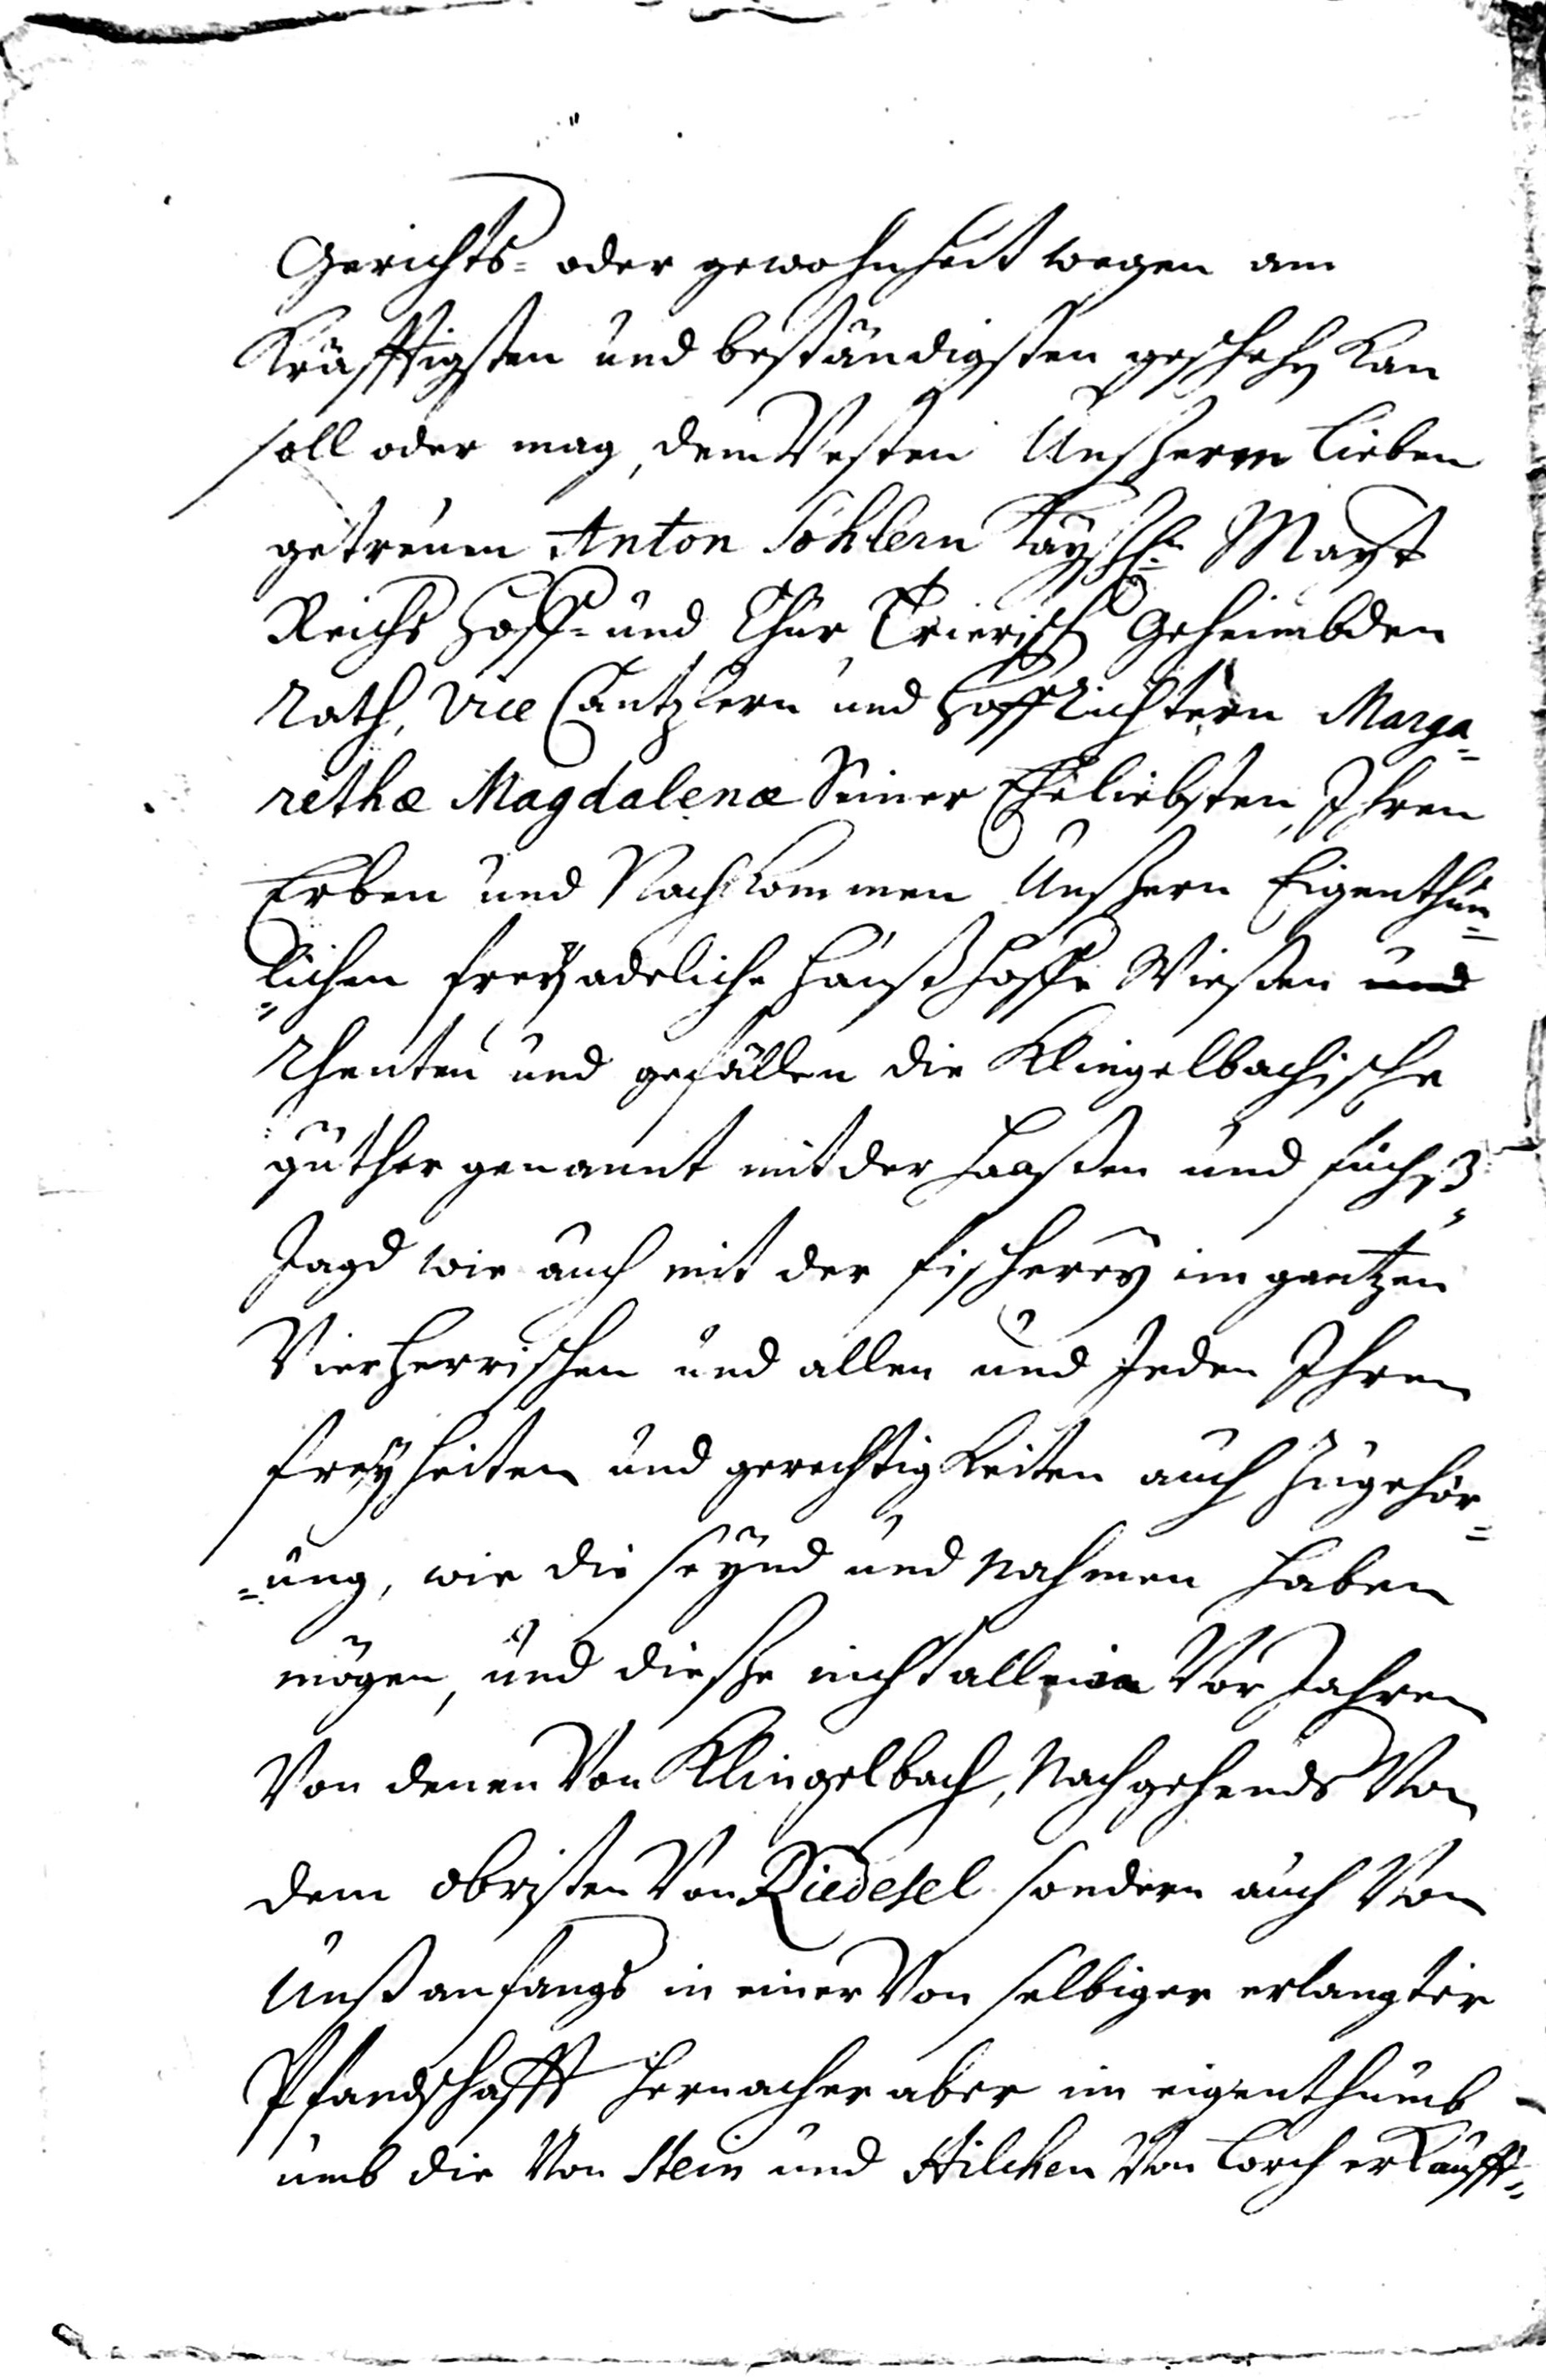 Gerichts- oder gewohnheit wegen am
Kräfftigsten und beständigsten geschehen kan
soll oder mag, dem Vesten Unßerem lieben
getreuen Anton Sohlern Kayßl. Mayt
Reichs Hoff- und Chur Trierisch Geheimbden
Rath, Vice Cantzlern und Hoffrichtern Marga=
rethæ Magdalenæ Seiner Eheliebsten, Ihren
Erben und Nachkommen Unßern Eigenthüm=
=lichen freyadeliche Hauß Höffe Wießen und
Rhenten und gefällen die Klingelbachische
güther genannt mit der Haaßen und fuchß=
Jagd wie auch mit der fischerey im gantzen
Vierherrischen und allen und Jeden Ihren
freyheiten und gerechtigkeiten auch Zugehör=
=ung, wie die seynd und Nahmen haben
mögen, und dieße nicht allein Vor Jahren
Von denen Von Klingelbach, Nachgehends Von
dem obristen Von Riedesel sondern auch Von
Unß anfangs in einer Von selbiger erlangter
Pfandschafft hernacher aber im eigenthumb
umb die Von Stein und Hilchen Von Lorch erkaufft=